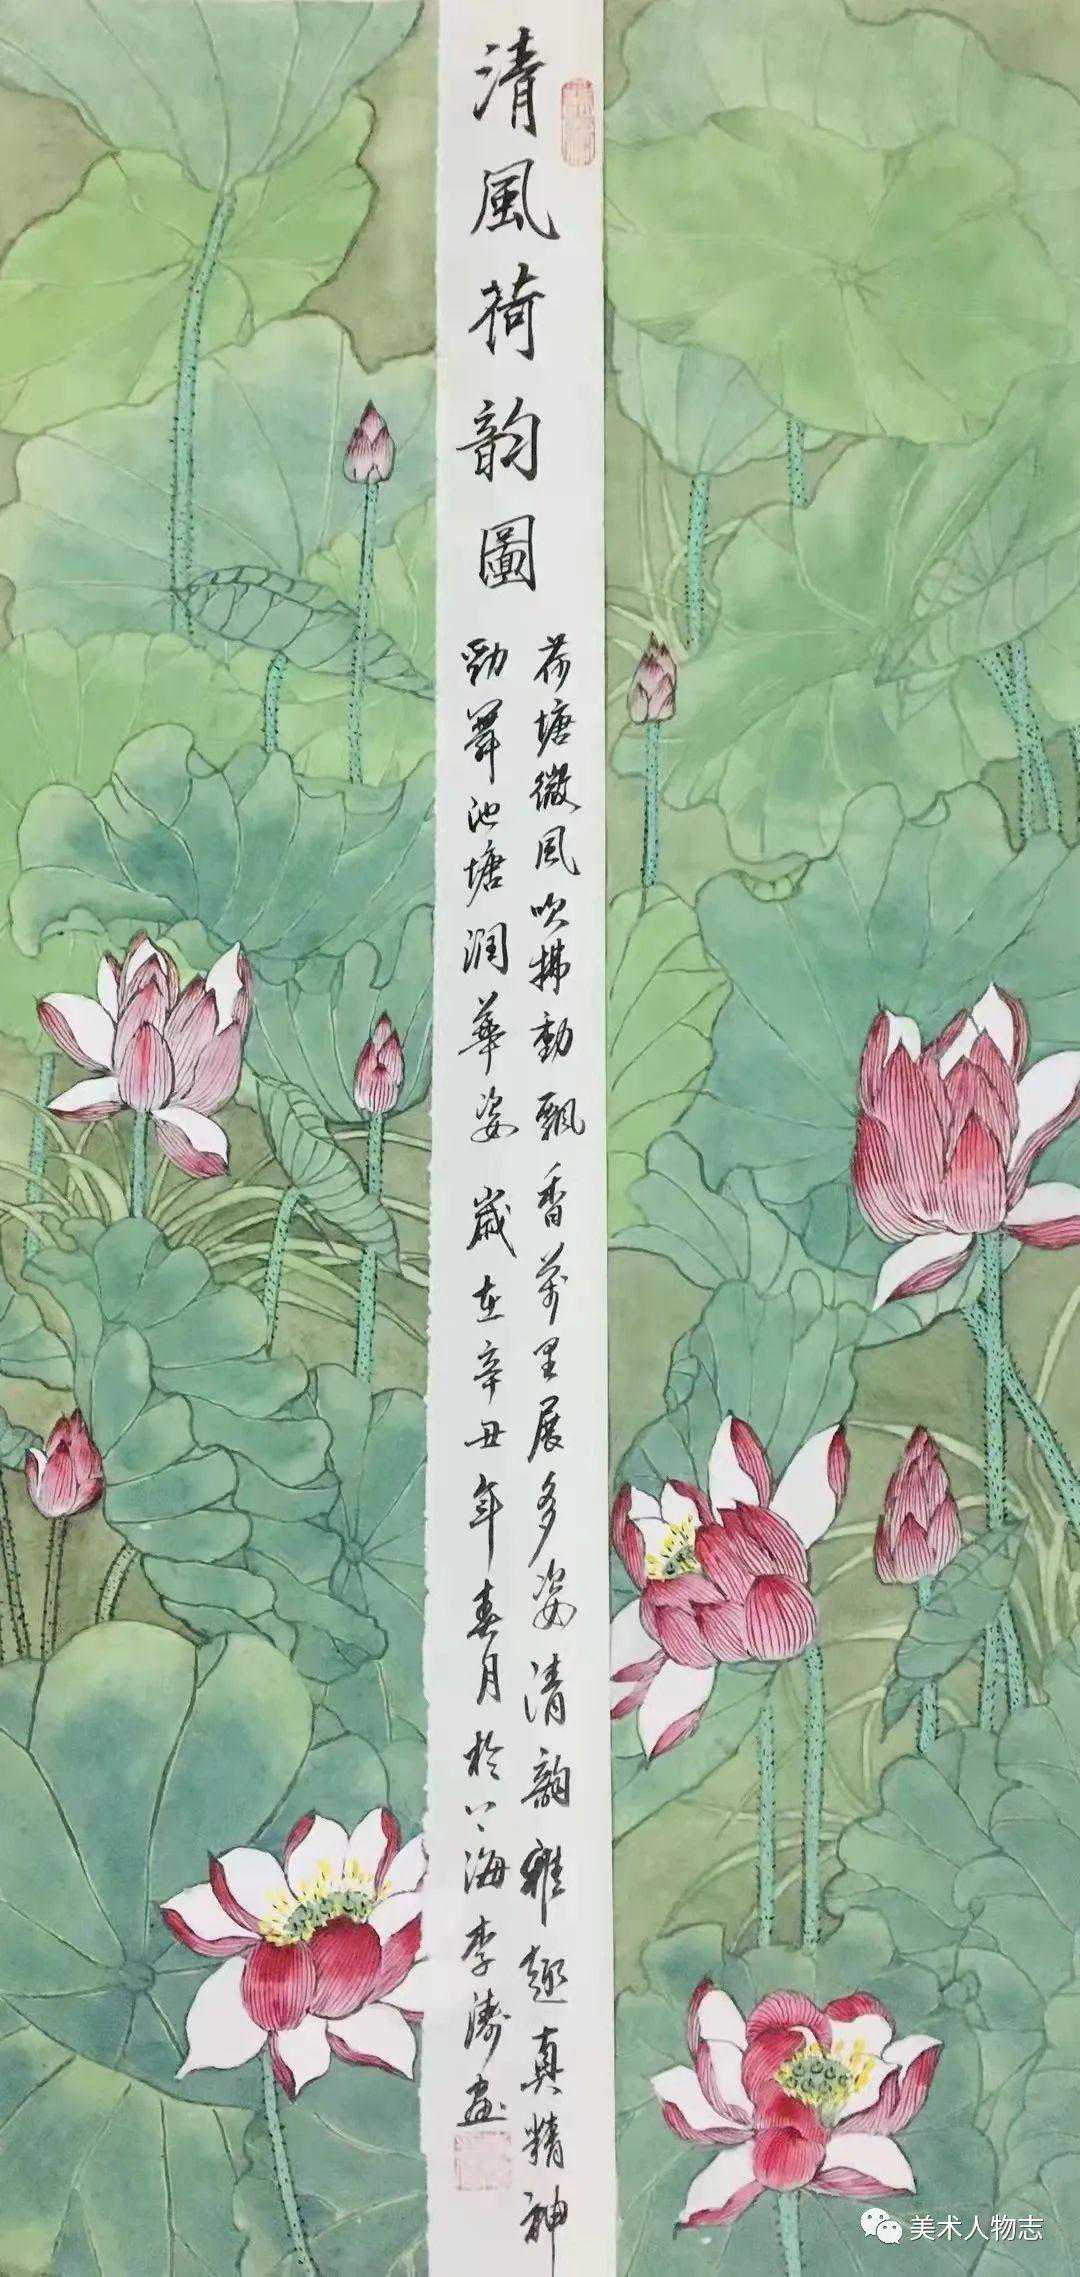 清風荷韵圖
荷塘微風吹拂動飘香萬里展多姿清韵雅趣真精神
勁舞池塘潤華姿 歲在辛丑年春月於上海李濤畫
美术人物志